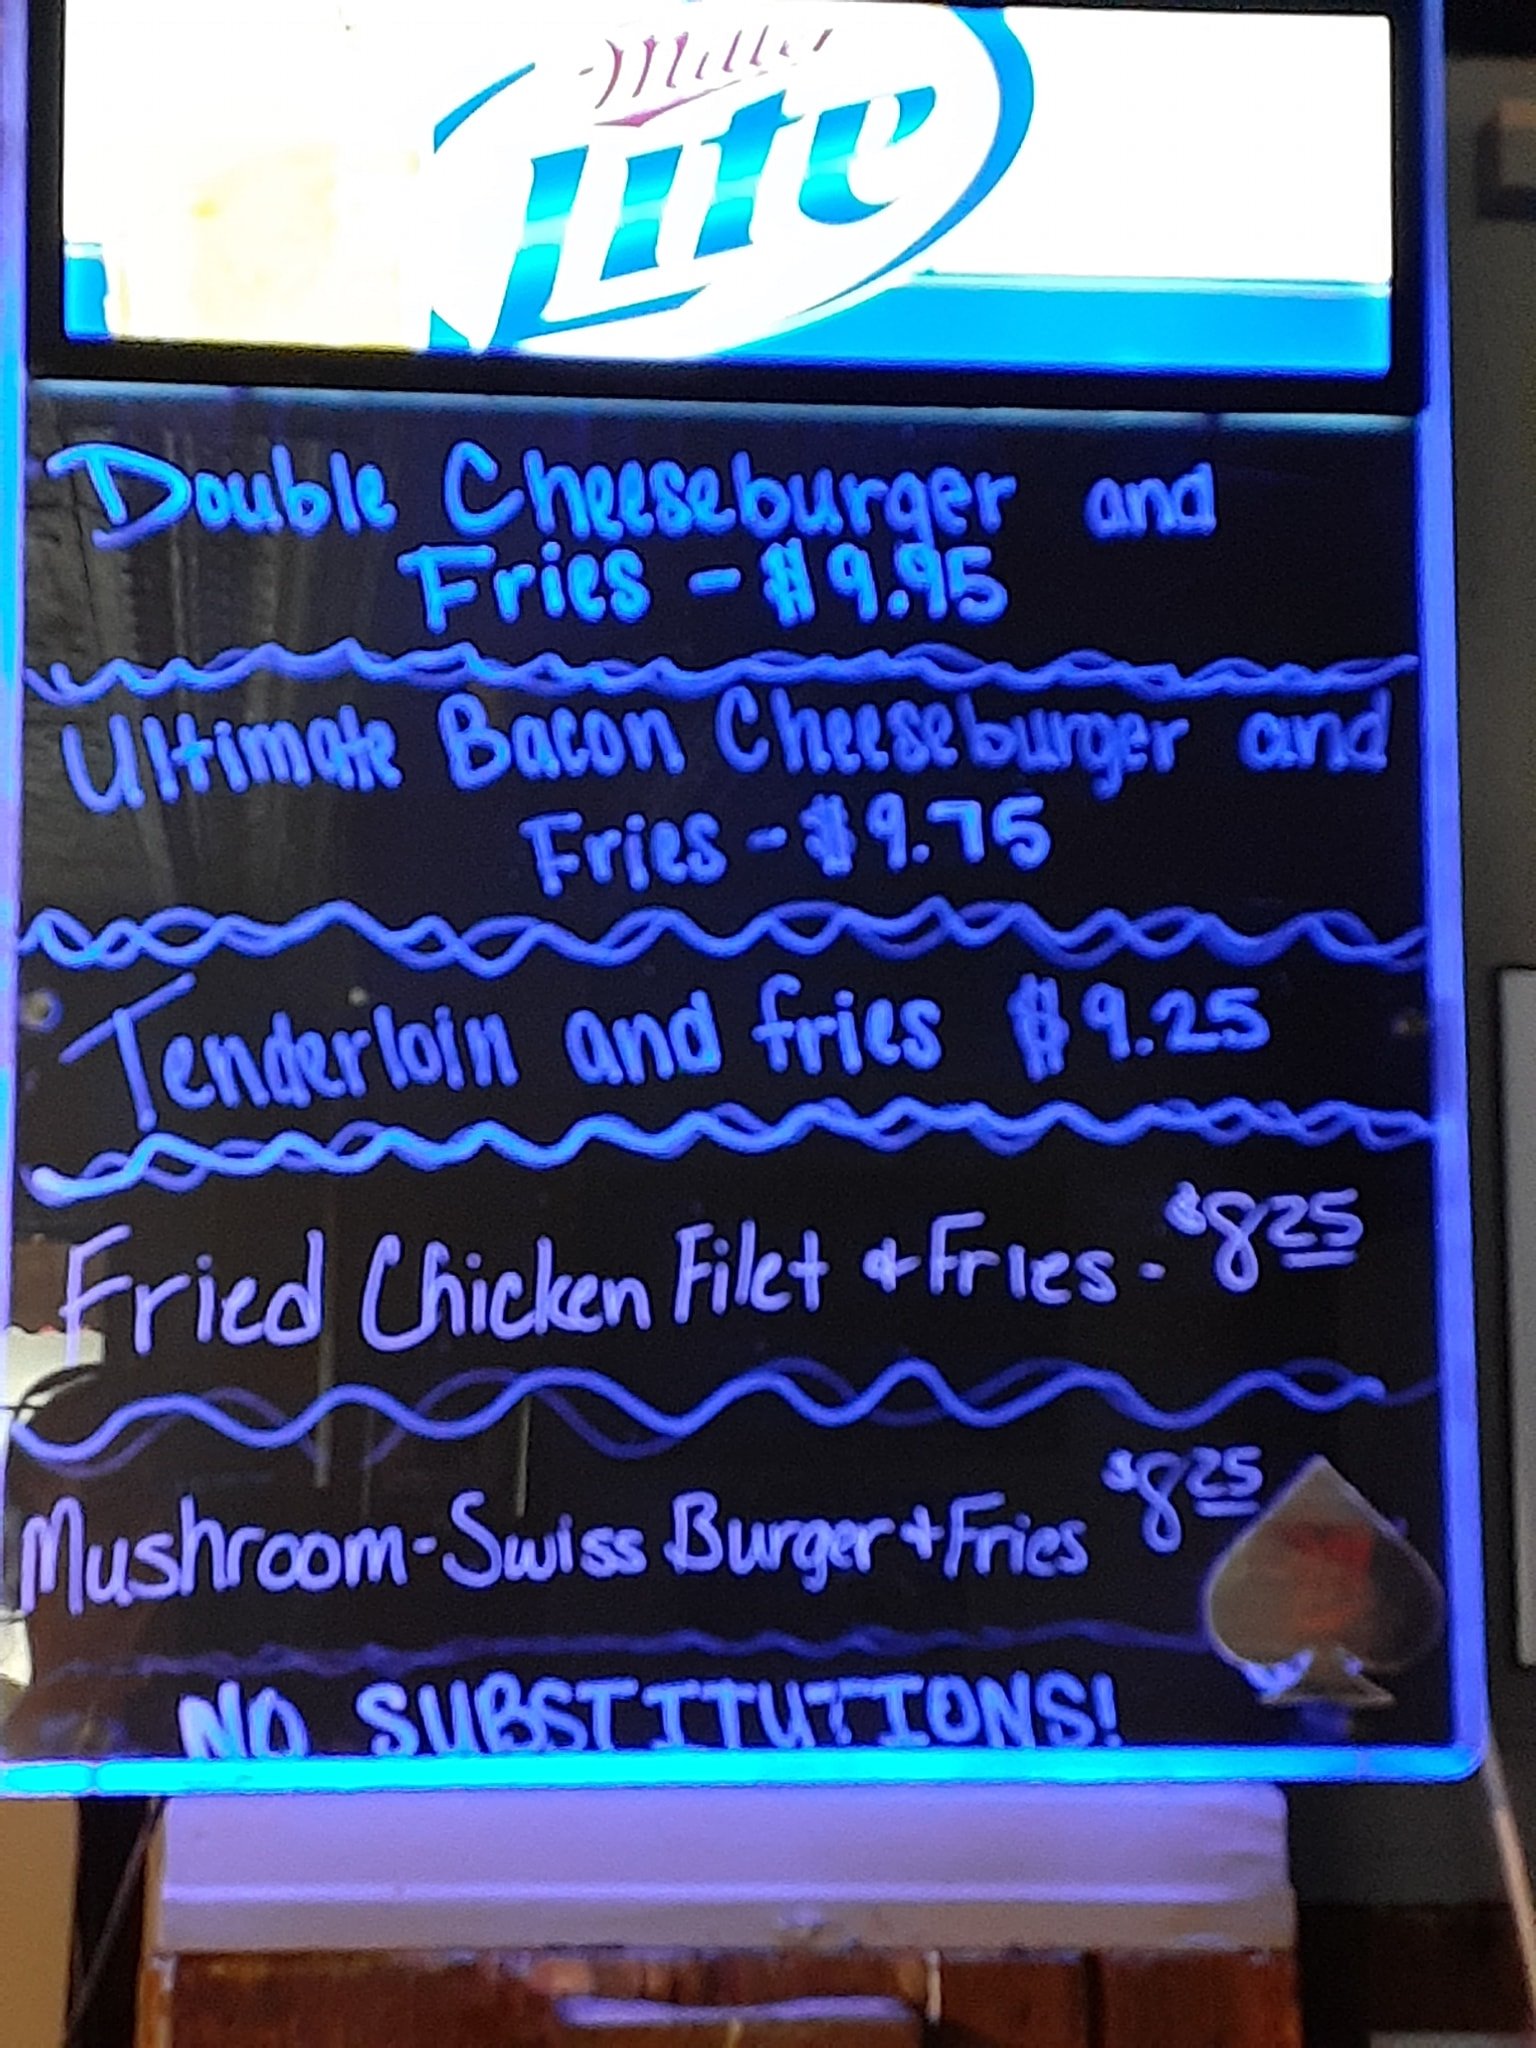 Miller
Lite
Double Cheeseburger and
Fries - $9.95
Ultimate Bacon Cheeseburger and
Fries - $9.75
Tenderloin and fries $9.25
Fried Chicken Filet & Fries - $8 25
Mushroom-Swiss Burger + Fries $8 25
NO SUBSTITUTIONS!